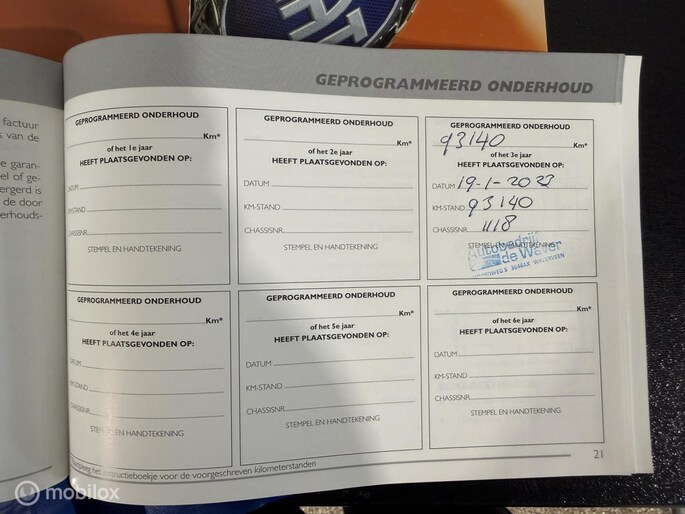 GEPROGRAMMEERD ONDERHOUD
factuur
van de
garan-
of ge-
de door
GEPROGRAMMEERD ONDERHOUD
Km*
of het 1e jaar
HEEFT PLAATSGEVONDEN OP:
DATUM
KM-STAND
CHASSISNR.
STEMPEL EN HANDTEKENING
GEPROGRAMMEERD ONDERHOUD
Km*
of het 2e jaar
HEEFT PLAATSGEVONDEN OP:
DATUM
KM-STAND
CHASSISNR.
STEMPEL EN HANDTEKENING
GEPROGRAMMEERD ONDERHOUD
93140 Km*
of het 3e jaar
HEEFT PLAATSGEVONDEN OP:
DATUM 19-1-2023
KM-STAND 93140
CHASSISNR. 1118
STEMPEL EN HANDTEKENING
Autobedrijf
de Wever
GEPROGRAMMEERD ONDERHOUD
Km*
of het 4e jaar
HEEFT PLAATSGEVONDEN OP:
DATUM
KM-STAND
CHASSISNR.
STEMPEL EN HANDTEKENING
GEPROGRAMMEERD ONDERHOUD
Km*
of het 5e jaar
HEEFT PLAATSGEVONDEN OP:
DATUM
KM-STAND
CHASSISNR.
STEMPEL EN HANDTEKENING
GEPROGRAMMEERD ONDERHOUD
Km*
of het 6e jaar
HEEFT PLAATSGEVONDEN OP:
DATUM
KM-STAND
CHASSISNR.
STEMPEL EN HANDTEKENING
het instructieboekje voor de voorgeschreven kilometerstanden
21
mobilox